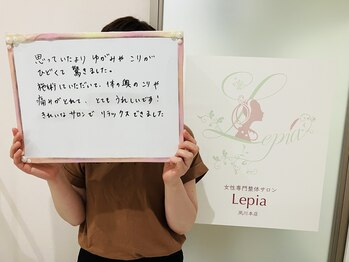 思っていたより ゆがみや こりが
ひどくて 驚きました。
施術していただいて、体の奥のこりや
痛みがとれて、とてもうれしいです!
きれいなサロンで リラックスできました
Lepia
女性専門整体サロン
Lepia
夙川本店